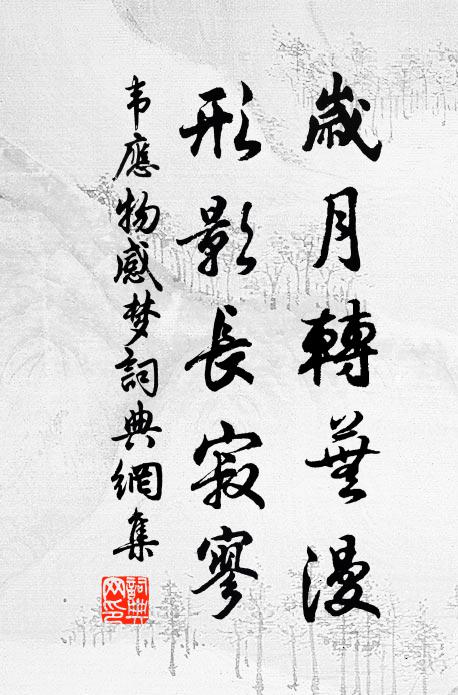 歲月轉蕪漫
形影長寂寥
韦應物感梦詞典網集
詞典网印